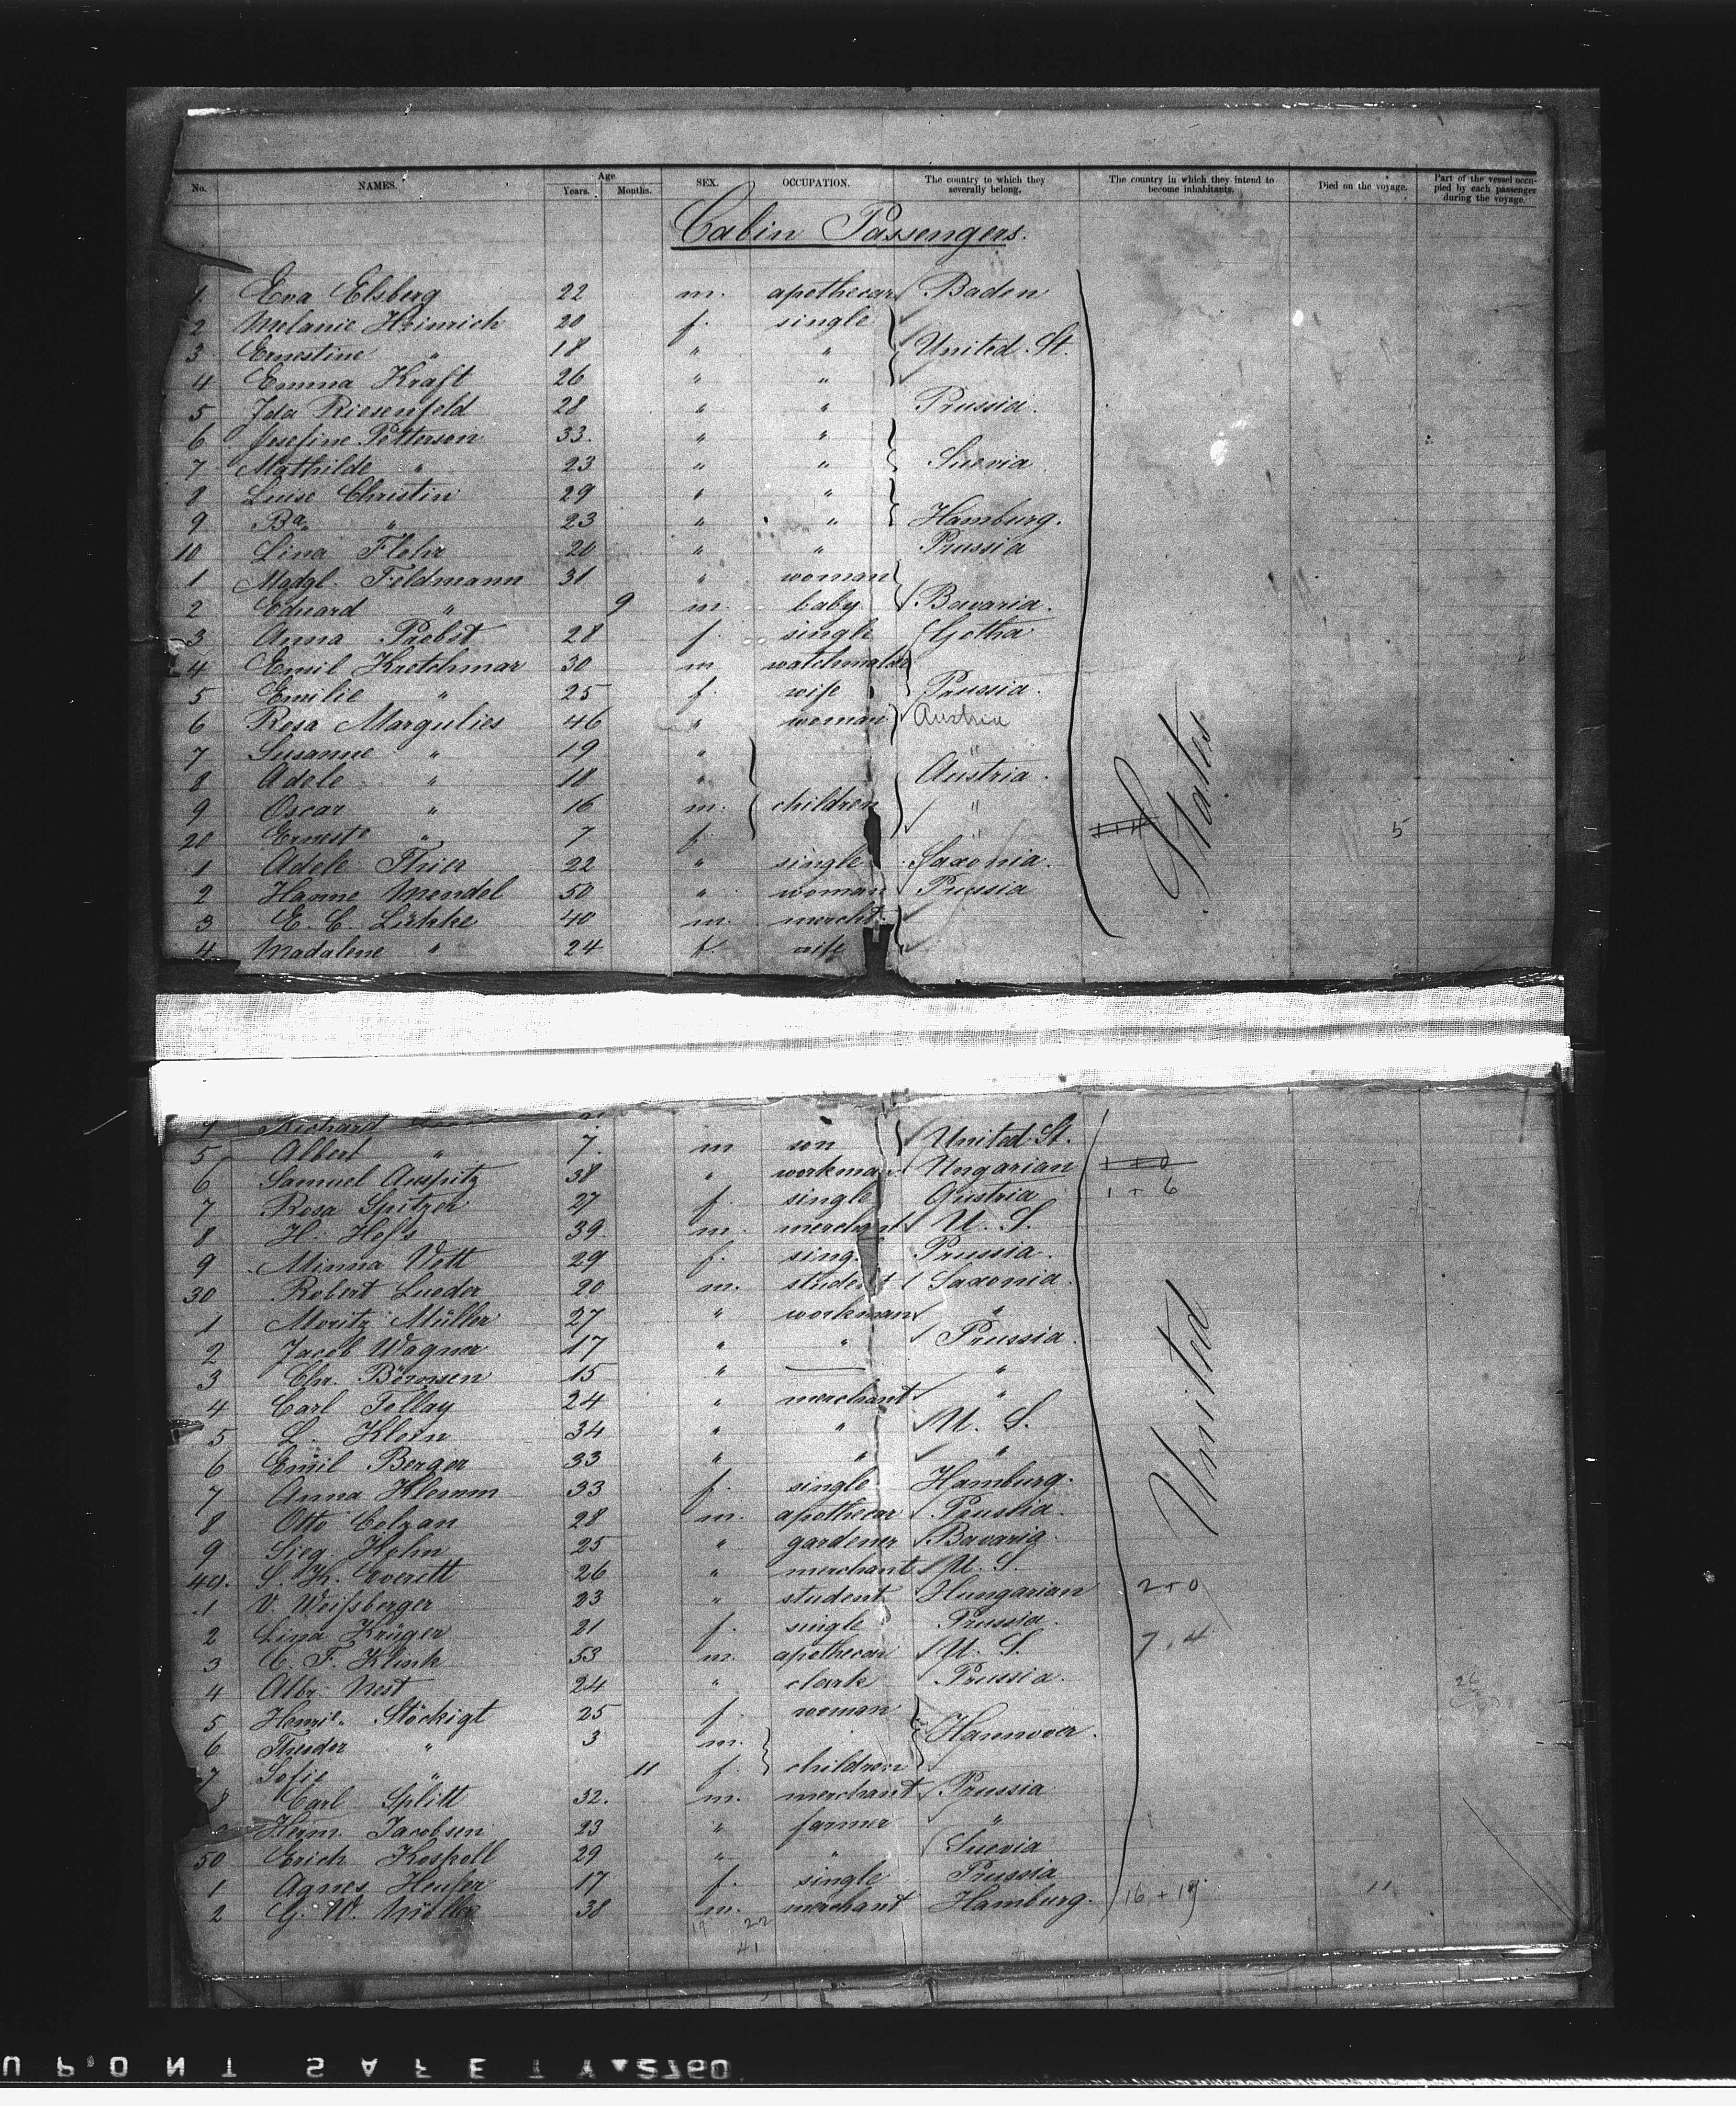 No. NAMES. Age Years. Months. SEX. OCCUPATION. The country to which they severally belong. The country in which they intend to become inhabitants. Died on the voyage. Part of the vessel occupied by each passenger during the voyage.
Cabin Passengers.
1. Eva Elsberg 22 m. apothecar Baden
2 Melanie Heinrich 20 f. single
3 Ernestine " 18 " " United St.
4 Emma Kraft 26 " "
5 Ida Riesenfeld 28 " " Prussia.
6 Josefine Pettersen 33. " "
7 Mathilde " 23 " " Suevia
8 Luise Christin 29 " "
9 Ba " 23 " " Hamburg.
10 Lina Flehr 20 " " Prussia
1 Magdl. Feldmann 31 " woman
2 Eduard " 9 m. baby Bavaria.
3 Anna Probst 28 f. single Gotha
4 Emil Kretchmar 30 m watchmaker
5 Emilie " 25 f. wife Prussia.
6 Rosa Margulies 46 " woman Austria
7 Susanne " 19 " "
8 Adele " 18 " Austria.
9 Oscar " 16 m. children "
20 Ernest " 7 f. " 5
1 Adele Thier 22 " single Saxonia.
2 Hanne Mendel 50 " woman Prussia
3 E. C. Lühke 40 m. mercht.
4 Madalene " 24 f. wife
States
4 Richard
5 Albert " 7. m son United St.
6 Samuel Auspitz 38 " workman Ungarian 1+0
7 Rosa Spitzer 27 f. single Austria 1+6
8 H. Hess 39. m. merchant U. S.
9 Minna Vett 29 f. sing. Prussia.
30 Robert Lueder 20 m. student Saxonia.
1 Moritz Müller 27 " workman "
2 Jacob Wagner 17 " " Prussia.
3 Chr. Börgsen 15 " — "
4 Carl Tellay 24 " merchant "
5 L. Klein 34 " " U. S.
6 Emil Berger 33 " " "
7 Anna Klemm 33 f. single Hamburg.
8 Otto Colzan 28 m. apothecar Prussia.
9 Sieg. Hohn 25 " gardener Bavaria.
40. S. K. Everett 26 " merchant U. S.
1 V. Weissberger 23 " student Hungarian 2+0
2 Lina Krüger 21 f. single Prussia.
3 C. F. Klink 53 m. apothecar U. S. 7+4
4 Albr. Nest 24 " clark Prussia.
5 Henri. Stöckigt 25 f. woman
6 Theodor " 3 m. Hannover.
7 Sofie " 11 f. children
8 Carl Splitt 32. m. merchant Prussia
Herm. Jacobsen 23 " farmer "
50 Erich Koskoll 29 " " Suevia
1 Agnes Heuser 17 f. single Prussia
2 G. W. Müller 38 m. merchant Hamburg. 16+19 11
19 22
41
United
26
DUPONT SAFETY 2760